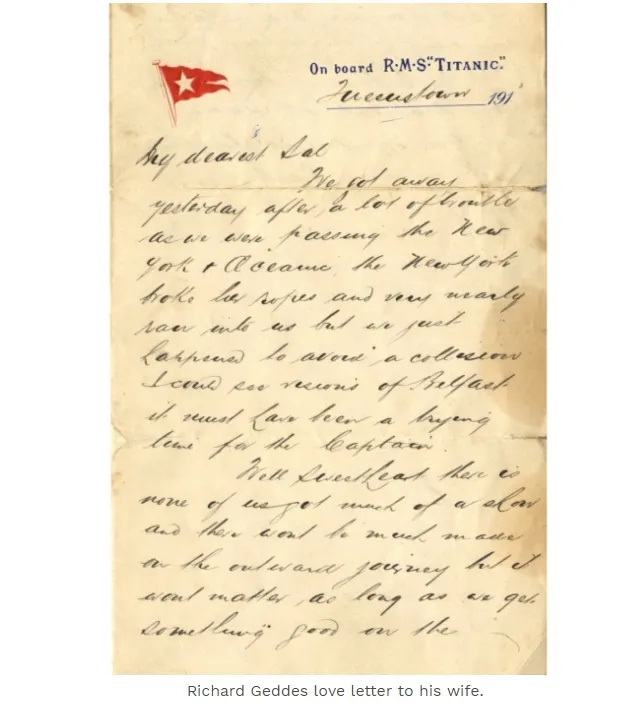 On board R·M·S "TITANIC."
Queenstown 191
My dearest Sal
We got away
yesterday after a lot of trouble
as we were passing the New
York & Oceanic the New York
broke her ropes and very nearly
ran into us but we just
happened to avoid a collision
I could see visions of Belfast
it must have been a trying
time for the Captain.
Well sweetheart there is
none of us got much of a show
and there wont be much made
on the outward journey but it
wont matter, as long as we get
something good on the
Richard Geddes love letter to his wife.